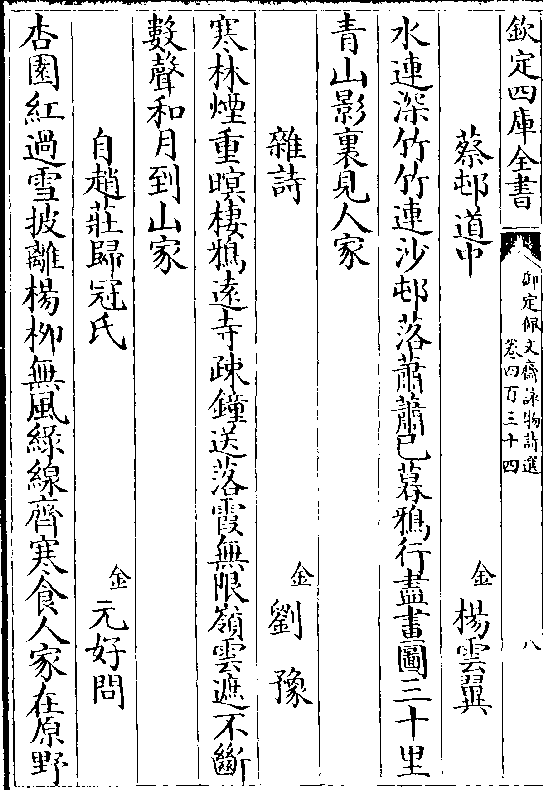 欽定四庫全書
御定佩文齋詠物詩選
卷四百三十四
八
蔡邨道中 金 楊雲翼
水連深竹竹連沙邨落蕭蕭已暮鴉行盡畫圖三十里
青山影裏見人家
雜詩 金 劉豫
寒林煙重暝棲鴉遠寺疎鐘送落霞無限嶺雲遮不斷
數聲和月到山家
自趙莊歸冠氏 金 元好問
杏園紅過雪披離楊柳無風綠線齊寒食人家在原野